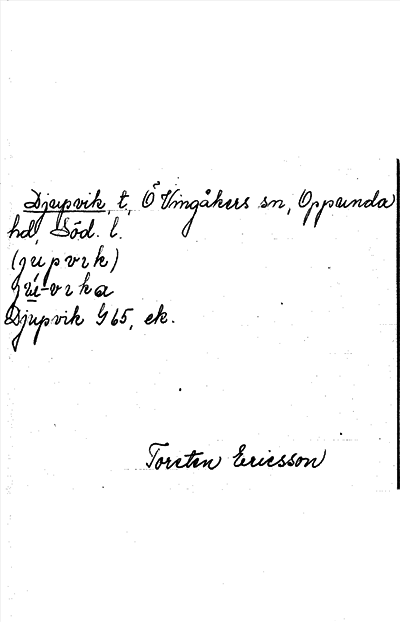 Djupvik, t, Ö Vingåkers sn, Oppunda
hd, Söd. l.
(júpvık)
jú-vıka
Djupvik G 65, ek.
Torsten Ericsson